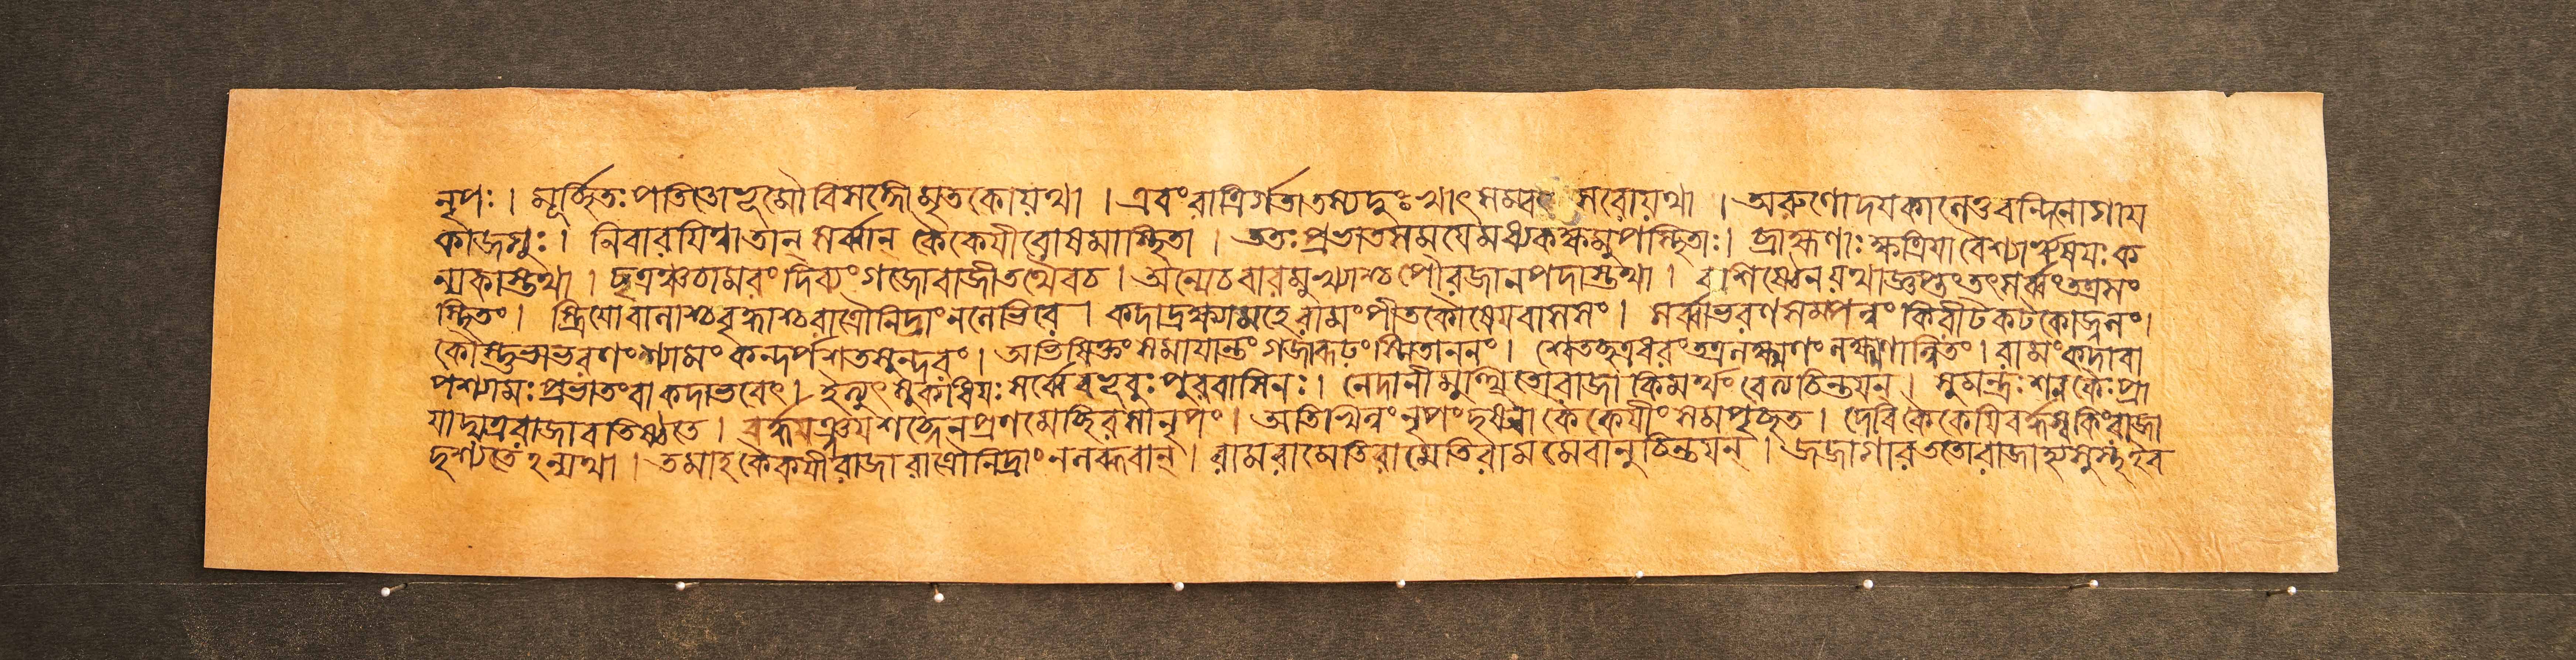 নৃপঃ। মূর্চ্ছিতঃ পতিতোভূমৌবিসংজ্ঞোমৃতকোযথা। এবংরাত্রির্গতাতস্যদুঃখাৎসম্বৎসরোযথা। অরুণোদয়কালেতুবন্দিনোগায়
কাজগুঃ। নিবারয়িত্বাতান্ সর্ব্বান্ কৈকেয়ীরোষমাস্থিতা। ততঃ প্রভাতসময়েমধ্যকক্ষমুপস্থিতাঃ। ব্রাহ্মণাঃ ক্ষত্রিয়াবৈশ্যাঋষয়ঃ ক
ন্যকাস্তথা। ছত্রঞ্চচামরংদিব্যংগজোবাজীতথৈবচ। অন্যেচবারমুখ্যাশ্চপৌরজানপদাস্তথা। বশিষ্ঠেনযথাজ্ঞপ্তংতৎসর্ব্বংতত্রসং
স্থিতং। স্ত্রিয়োবালাশ্চবৃদ্ধাশ্চরাত্রৌনিদ্রাংনলেভিরে। কদাদ্রক্ষ্যামহেরামংপীতকৌষেয়বাসসং। সর্ব্বাভরণসম্পন্নংকিরীটকটকোজ্জ্বলং।
কৌস্তুভাভরণংশ্যামংকন্দর্পশতসুন্দরং। অভিষিক্তংসমায়ান্তংগজারূঢ়ংস্মিতাননং। শ্বেতচ্ছত্রধরংতত্রলক্ষ্মণংলক্ষণান্বিতং। রামংকদাবা
পশ্যামঃ প্রভাতংবাকদাভবেৎ। ইত্যুৎসুকধিয়ঃ সর্ব্বেবভূবুঃ পুরবাসিনঃ। নেদানীমুত্থিতোরাজাকিমর্থংচেত্যচিন্তয়ন্। সুমন্ত্রঃ শনকৈঃ প্রা
য়াদ্যত্ররাজাবতিষ্ঠতে। বর্দ্ধয়ঞ্জয়শব্দেনপ্রণমেচ্ছিরসানৃপং। অতিখিন্নংনৃপংদৃষ্ট্বাকৈকেয়ীংসমপৃচ্ছত। দেবিকৈকেয়িবর্দ্ধস্বকিংরাজা
দৃশ্যতেঽন্যথা। তমাহকৈকয়ীরাজারাত্রৌনিদ্রাংনলব্ধবান্। রামরামেতিরামেতিরামমেবানুচিন্তয়ন্।